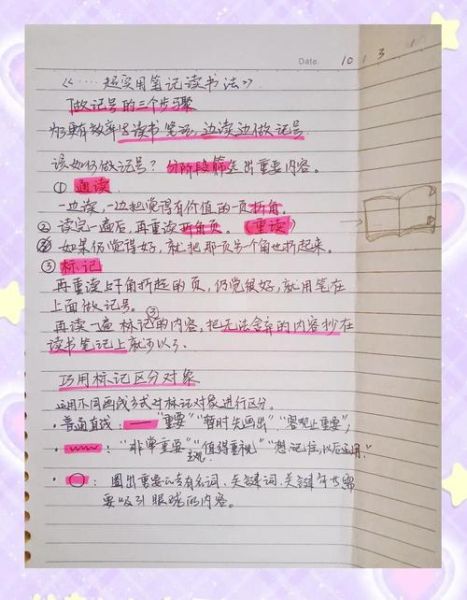 Date. 10 / 3
《……超实用笔记读书法》
做记号的三个步骤
为更有效率写读书笔记,边读边做记号
该如何做记号?分阶段筛选出重要内容。
① 通读
一边读,一边把觉得有价值的一页折角,
② 读完一遍后,再重读折角页。(重读)
如果仍觉得好,就把那页另个角也折起来。
③ 标记
再重读上下角折起的页,仍觉很好,就用笔在
上面做记号。
再读一遍标记的内容,把无法舍弃的内容抄在
读书笔记上就可以了。
巧用标记区分对象
运用不同画线方式对标记对象进行区分。
· 普通直线:—— "重要""暂时先画出""客观上重要",
· ﹏﹏:"非常重要""值得重视""想记住,以后运用."
主观
· ○:圈出重要的专有名词,关键词,关键字节
要吸引眼球的内容。